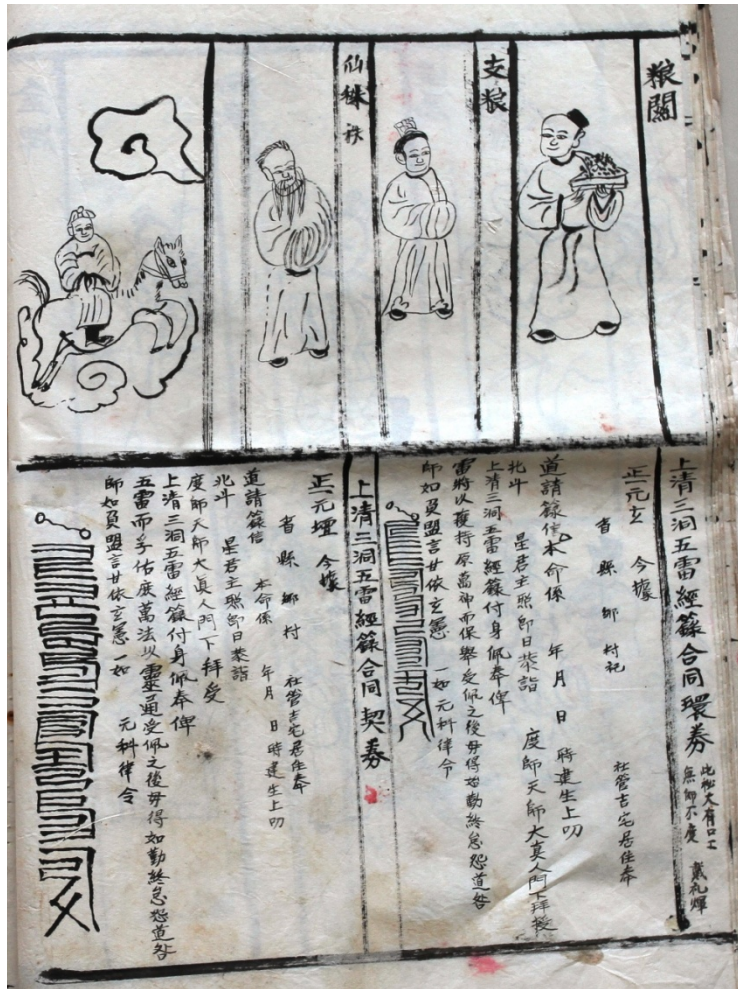 粮關
支粮
仙稀 秩
上清三洞五雷經籙合同環券
此秘大有口工
無師不度 戴礼輝
正一元玄 今據
省 縣 鄉 村祀
社管吉宅居住奉
道請籙信 本命係 年 月 日 時建生上叨
北斗 星君主照即日恭詣 度師天師大真人門下拜授
上清三洞五雷經籙付身佩奉俾
雷將以護持原萬神而保舉受佩之後毋得始勤終怠怨道咎
師如負盟言甘依玄憲 一如元科律令
上清三洞五雷經籙合同契券
正一元壇 今據
省 縣 鄉 村 社管吉宅居住奉
道請籙信 本命係 年 月 日 時建生上叨
北斗 星君主照即日恭詣
度師天師大真人門下拜受
上清三洞五雷經籙付身佩奉俾
五雷而予佑度萬法以靈通受佩之後毋得如勤終怠怨道咎
師如負盟言甘依玄憲 一如 元科律令